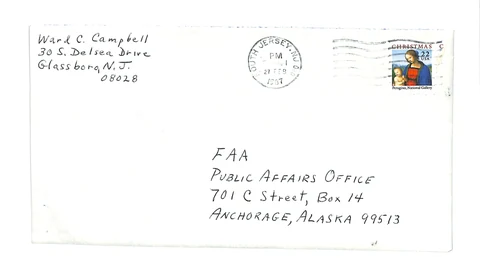 Ward C. Campbell
30 S. Delsea Drive
Glassboro, N.J.
08028
SOUTH JERSEY, NJ
PM
27 FEB
1987
CHRISTMAS
22
USA
Perugino, National Gallery
FAA
PUBLIC AFFAIRS OFFICE
701 C Street, Box 14
ANCHORAGE, ALASKA 99513